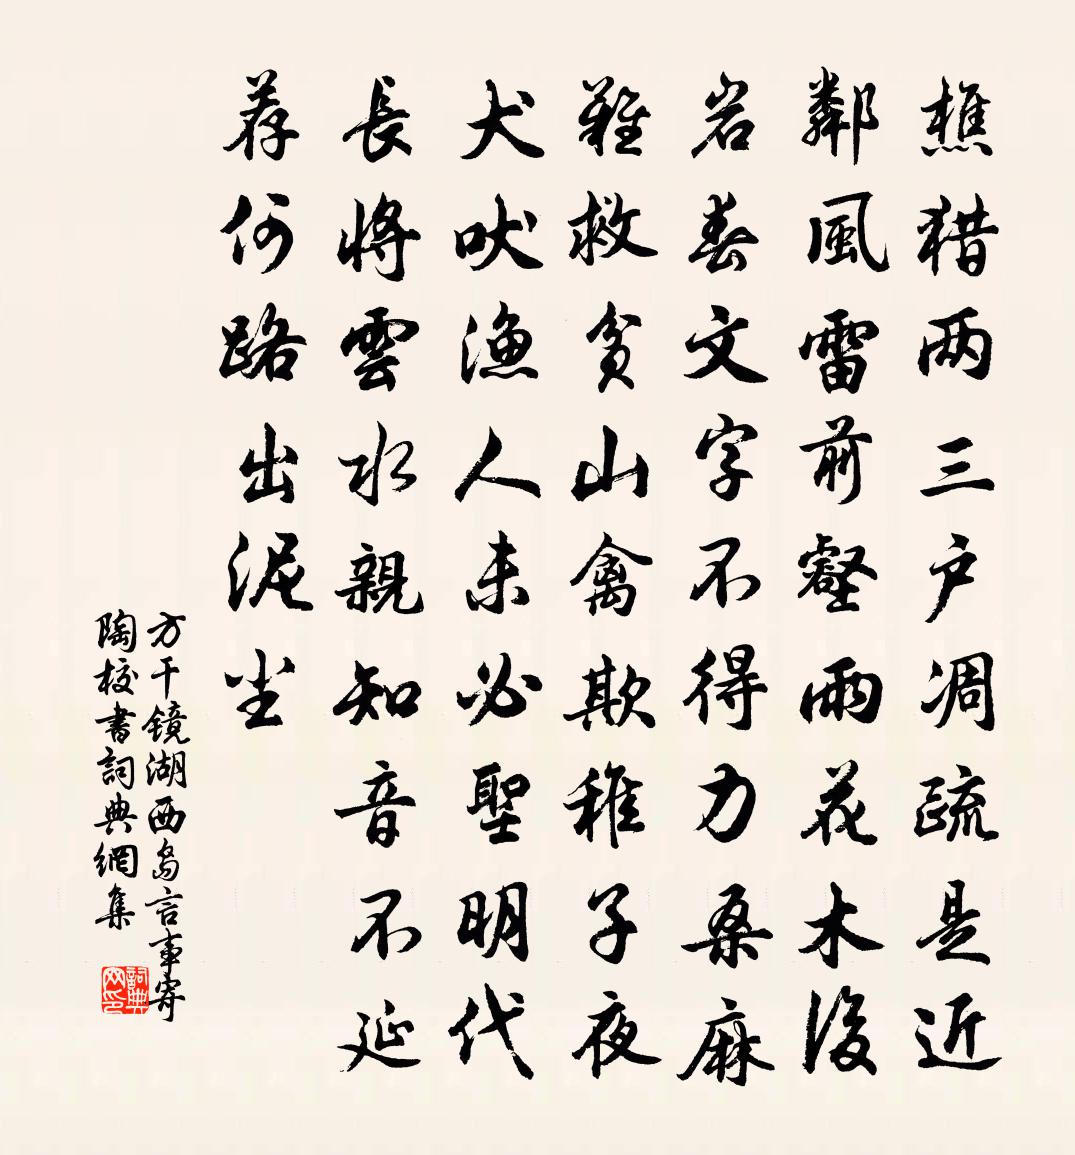 樵猎两三户凋疏是近
鄰風雷前壑雨花木後
岩春文字不得力桑麻
難救貧山禽欺稚子夜
犬吠漁人未必聖明代
長將雲水親知音不延
荐何路出泥尘
方干镜湖西岛言事寄
陶校書詞典網集
詞典网印